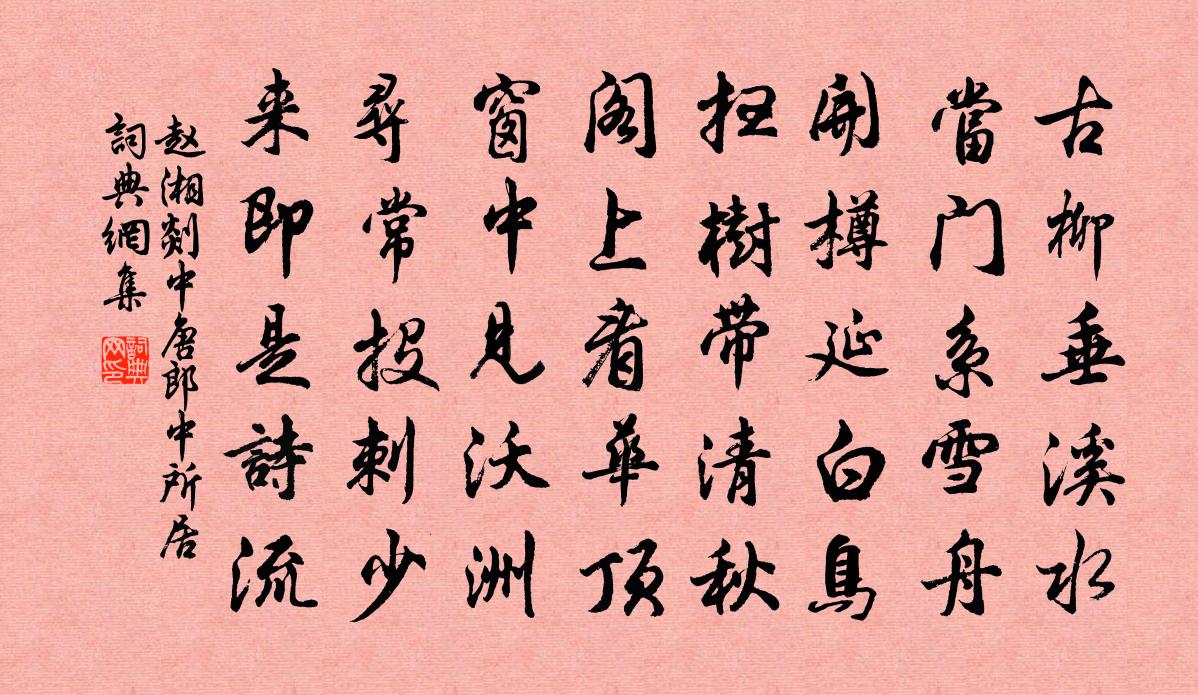 古柳垂溪水
當门系雪舟
開樽延白鳥
扫樹带清秋
阁上看華顶
窗中見沃洲
尋常投刺少
来即是詩流
赵湘剡中唐郎中所居
詞典網集
詞典网印